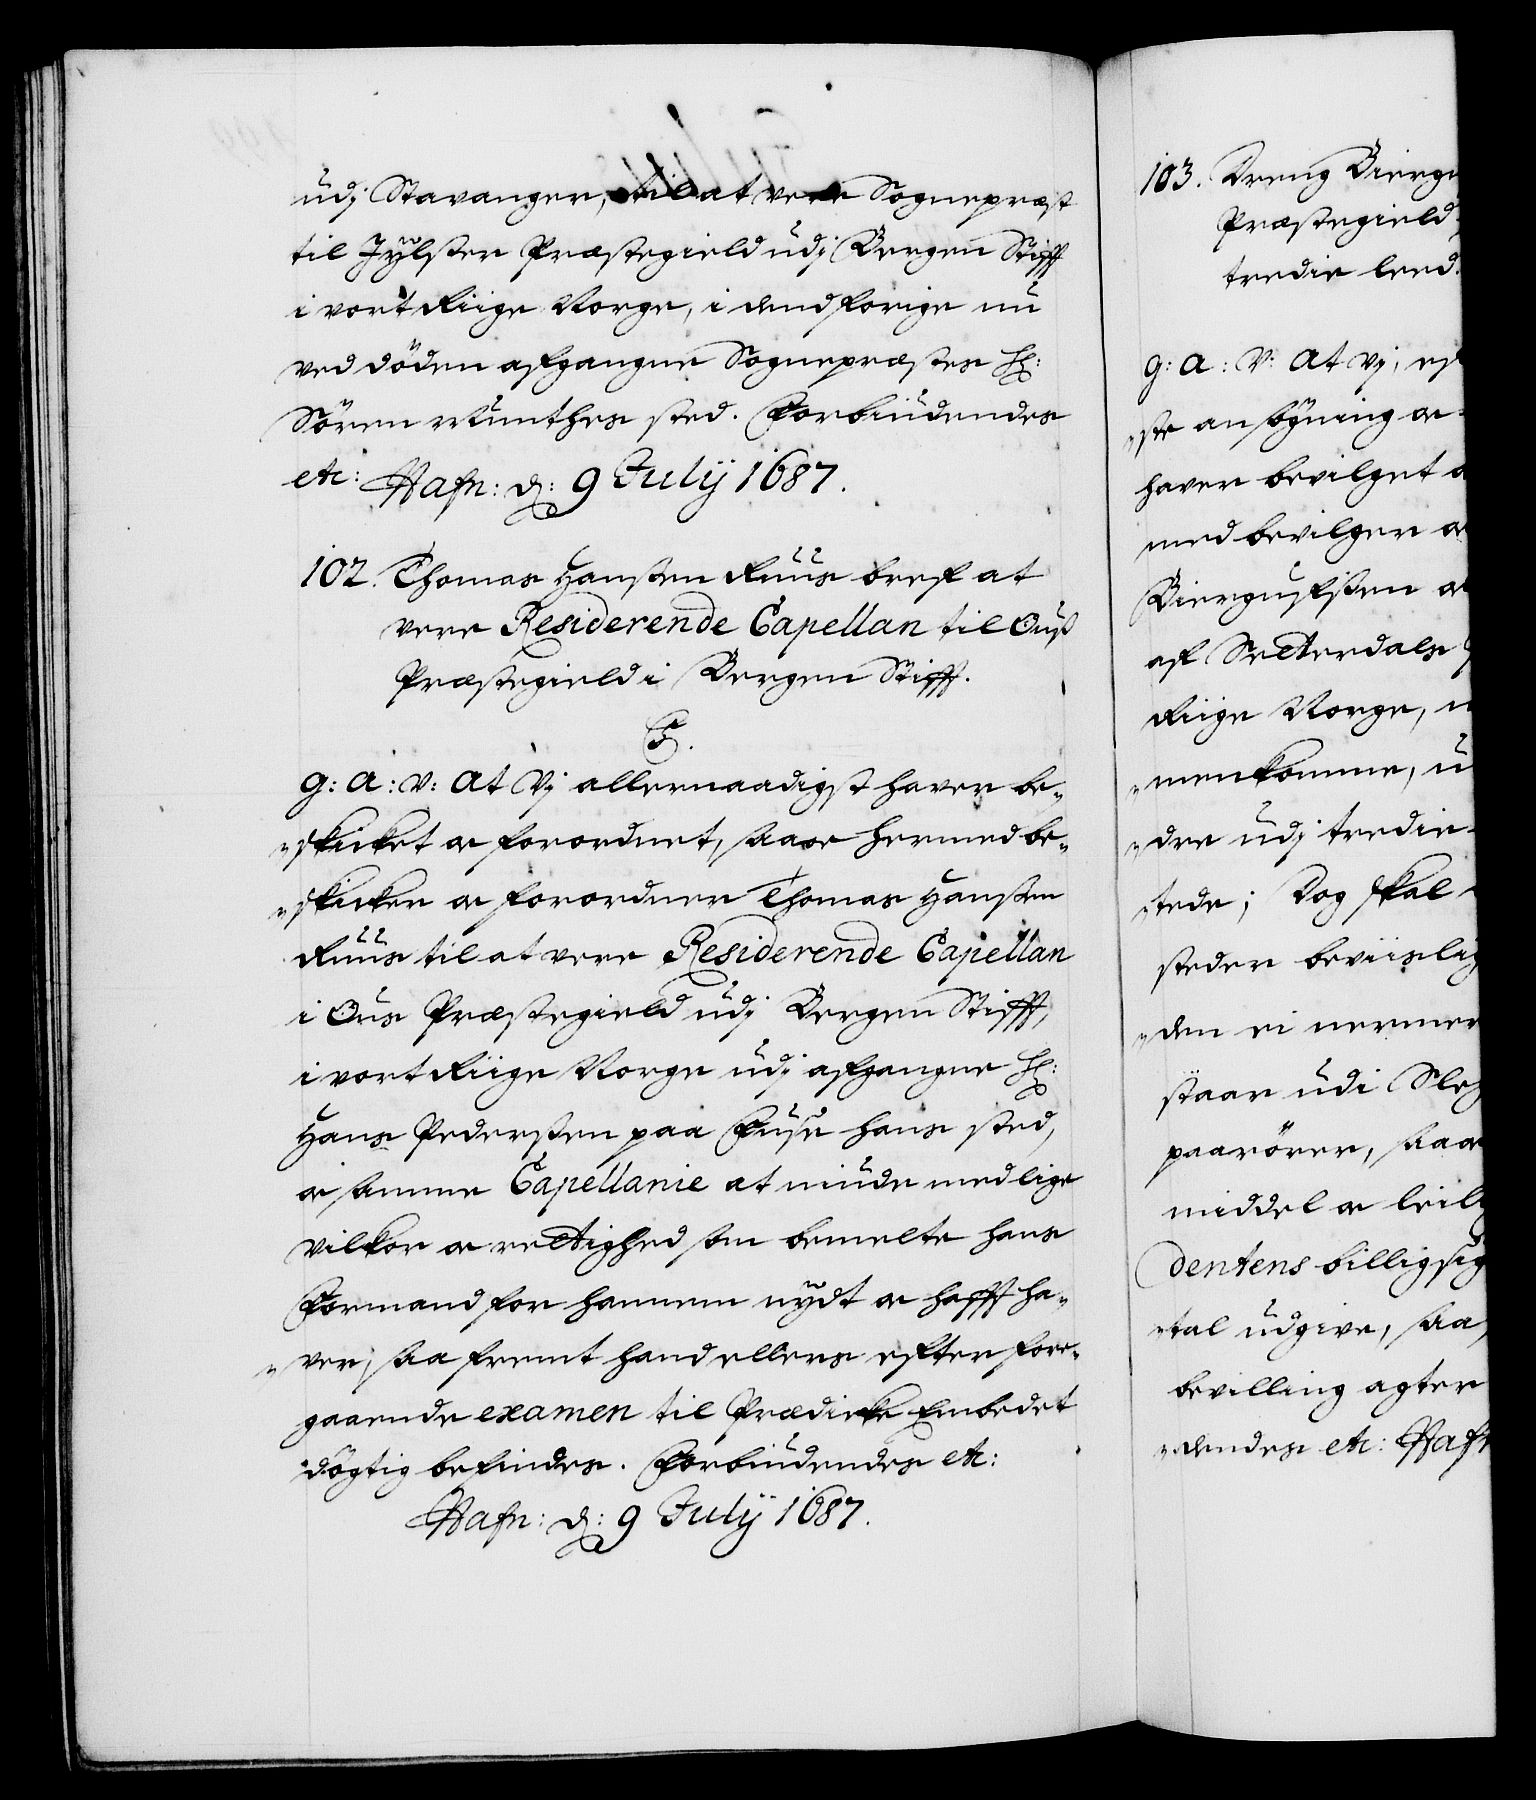 udj Stavanger, til at vere Sognepræst
til Jÿlster Præstegield udj Bergen Stifft
i vort Riige Norge, i dend forige nu
ved döden afgangne Sognepræstes Hr:
Sören Munthes sted. Forbiudendes
etc: Hafn: d: 9 Julÿ 1687.
102. Thomas Hanssen Ruus bref at
vere Residerende Capellan til Ouß
Præstegield i Bergen Stifft.
C5.
G: A: V: At Vj allernaadigst hafver be-
skicket oc forordnet, saa oc hermed be-
skicker oc forordner Thomas Hanssen
Ruus til at vere Residerende Capellan
i Ous Præstegield udj Bergen Stifft,
i vort Riige Norge udj afgangne Hr:
Hans Pederssen paa Fuse hans sted,
oc samme Capellanie at niude med lige
vilkor oc rettighed som bemelte hans
Formand for hannem nÿdt oc hafft ha-
ver; saa fremt hand ellers efter fore-
gaaende examen til Prædicke Embedet
dögtig befindes. Forbiudendes etc:
Hafn: d: 9 Julÿ 1687.
103. Dreng Bierg
Præstegield
tredie leed.
G: A: V: At Vj, ef
ste ansögning oc
haver bevilget
med bevilger oc
Biergulfssen oc
af Setterdals
Riige Norge,
menkomme, u
dre udj tredie
stede; Dog skal
steder beviislig
den ei nermer
staar udi Sleg
paarörer, saa oc
middel oc leilig
dentens billigsig
tal udgive, saa
bevilling agter
dendes etc: Hafn